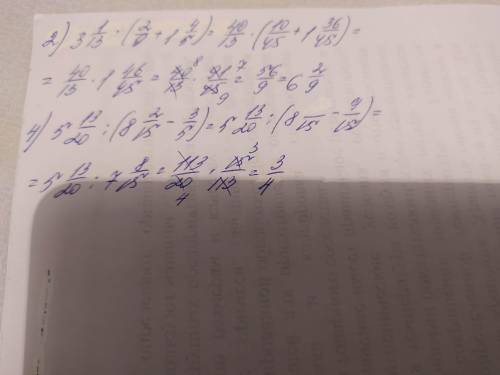 2) 3 1/13 · (2/9 + 1 4/5) = 40/13 · (10/45 + 1 36/45) =
= 40/13 · 1 46/45 = 40 8/13 · 91 7/45 9 = 56/9 = 6 2/9
4) 5 13/20 : (8 2/15 - 3/5) = 5 13/20 : (8 /15 - 9/15) =
= 5 13/20 : 7 8/15 = 113/20 4 · 15 3/113 = 3/4